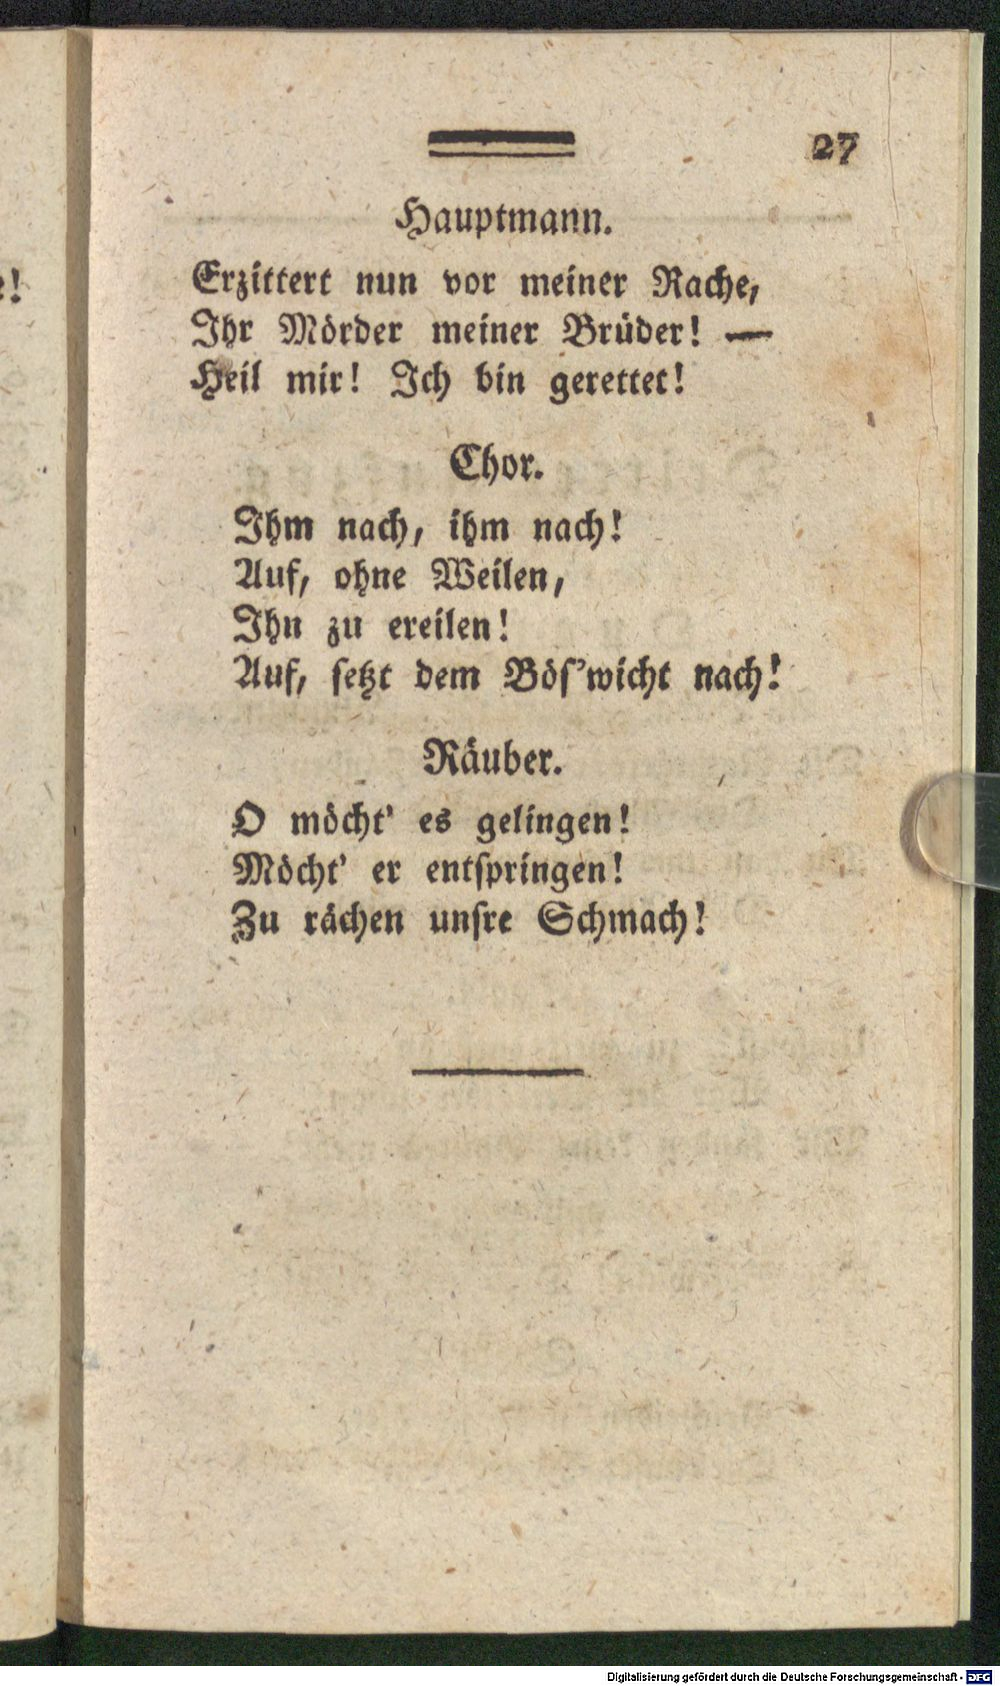 27
Hauptmann.
Erzittert nun vor meiner Rache,
Ihr Mörder meiner Brüder! —
Heil mir! Ich bin gerettet!
Chor.
Ihm nach, ihm nach!
Auf, ohne Weilen,
Ihn zu ereilen!
Auf, ſetzt dem Böſ'wicht nach!
Räuber.
O möcht' es gelingen!
Möcht' er entſpringen!
Zu rächen unſre Schmach!
Digitalisierung gefördert durch die Deutsche Forschungsgemeinschaft - DFG